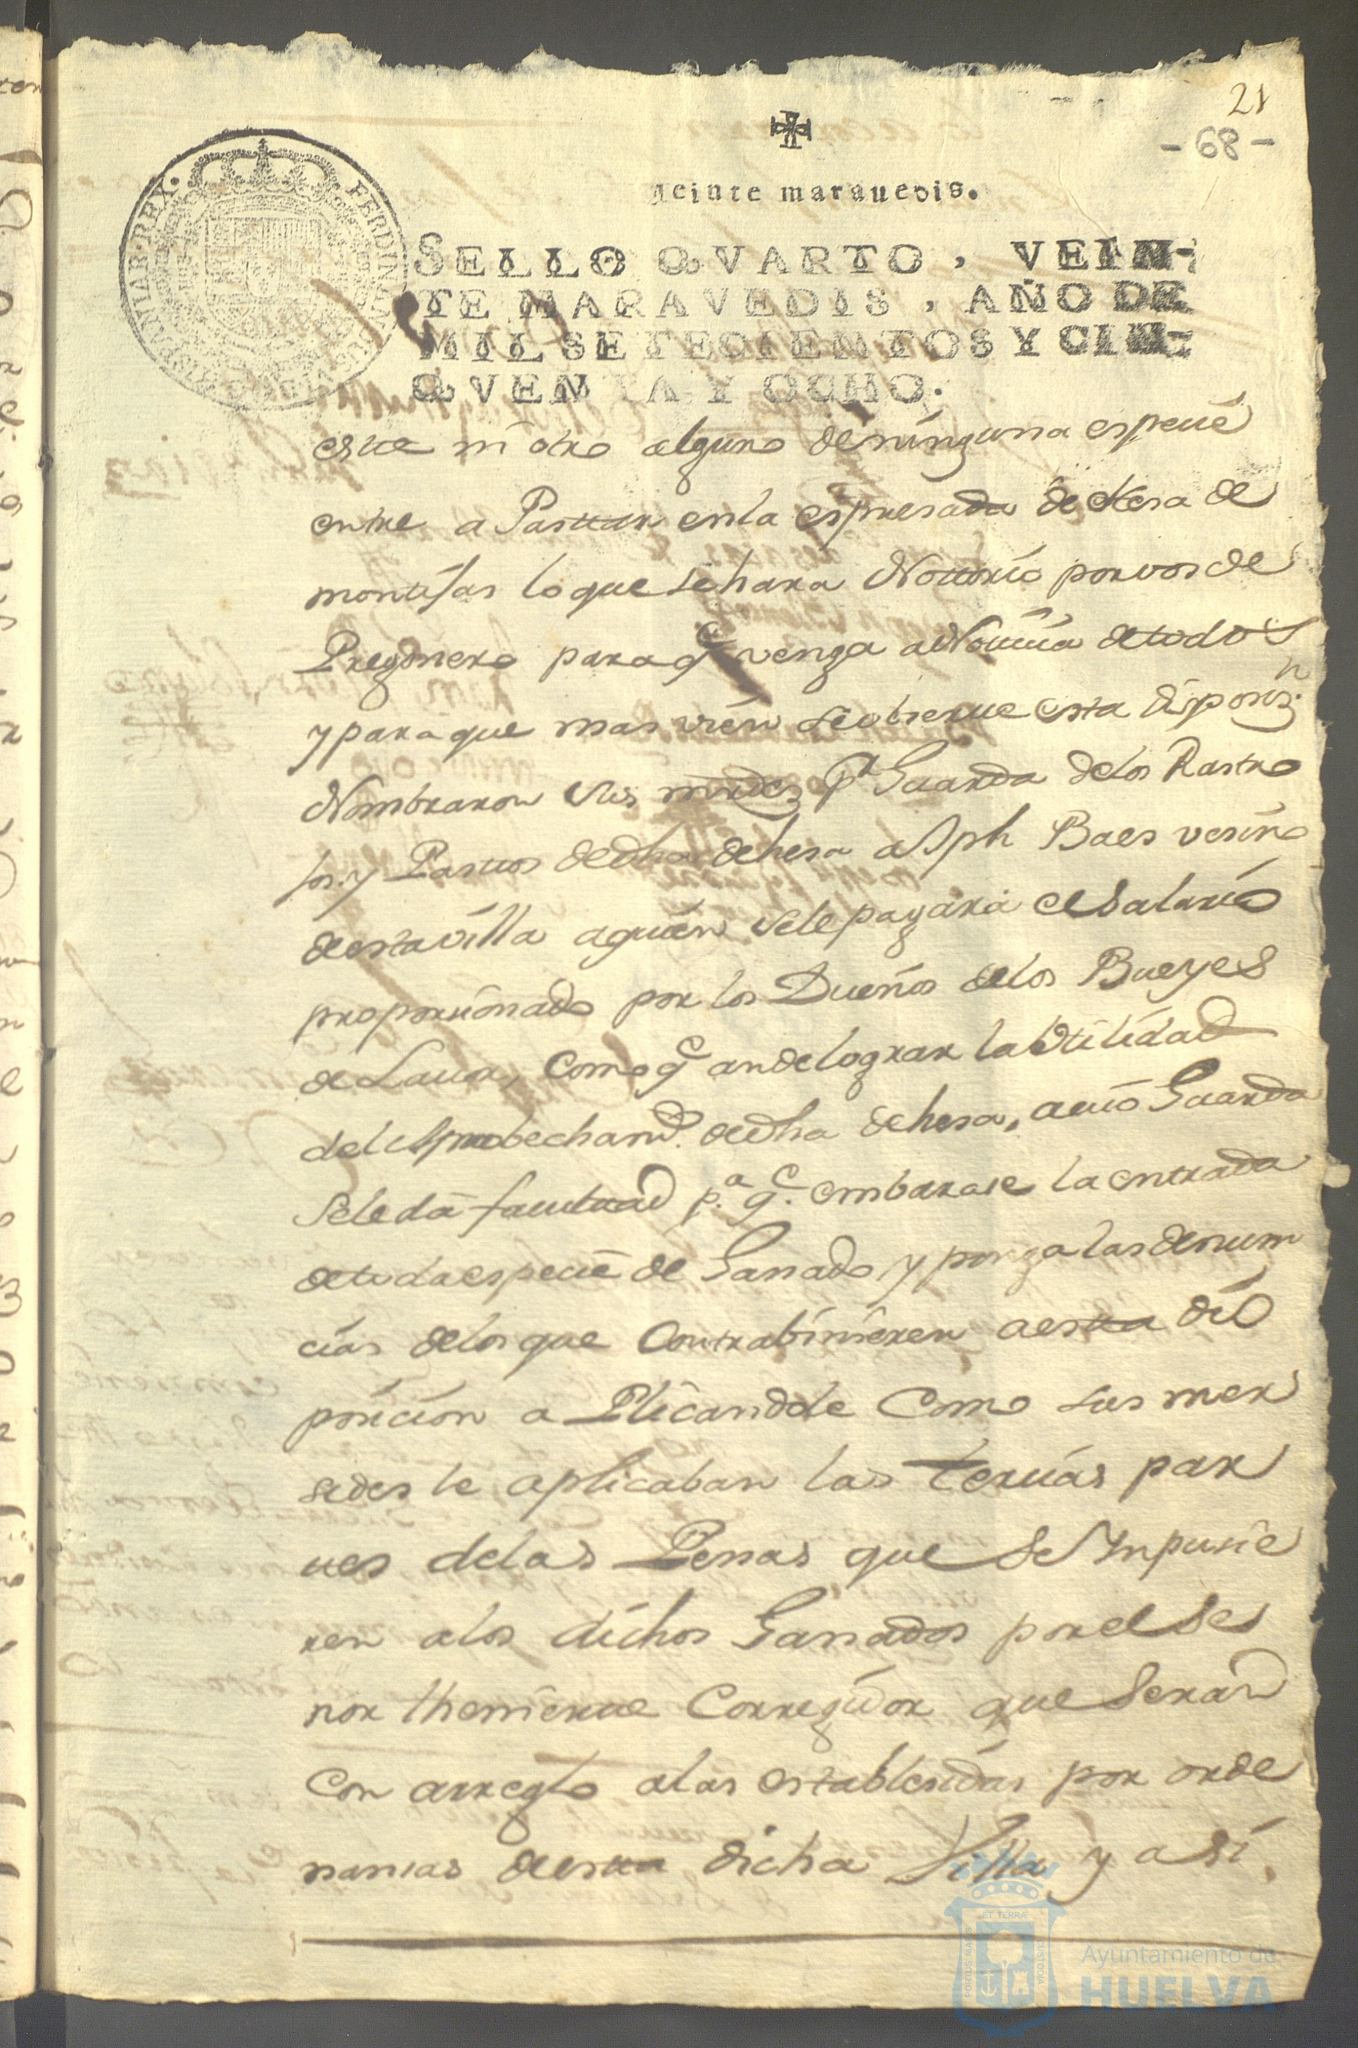 21
- 68 -
Veinte marauedis.
SELLO QVARTO, VEIN-
TE MARAVEDIS, AÑO DE
MIL SETECIENTOS Y CIN-
QVENTA Y OCHO.
este ni otro alguno de ninguna especie
entre a Pastar en la espresada dehesa de
montijas lo que se hara Nottorio por vos de
Pregonero para q^e venga a Noticia de todos
y para que mas vien se obserue esta disposiz.n
Nombraron sus mrdes p^a Guarda de los Rastro
jos y Pastos de dha dehesa a Jph Baes vesino
de esta villa a quien se le pagara el salario
proporsionado por los Dueños de los Bueyes
de Lauor, como q^e an de lograr la Vtilidad
del Aprobecham^to. de dha dehesa, a cuio Guarda
se le da facultad p.^a q^e. embarase la entrada
de toda especie de Ganado y ponga las denun
cias de los que Contrabinieren a esta dis
posicion aPlicandole Como sus mer
sedes le aplicaban las tercias par
tes de las Penas que se Ynpusie
ren a los dichos Ganados por el se
ñor theniente Corregidor que Seran
Con arreglo a las establesidas por orde
nansas de esta dicha Villa y asi
Ayuntamiento de
HUELVA